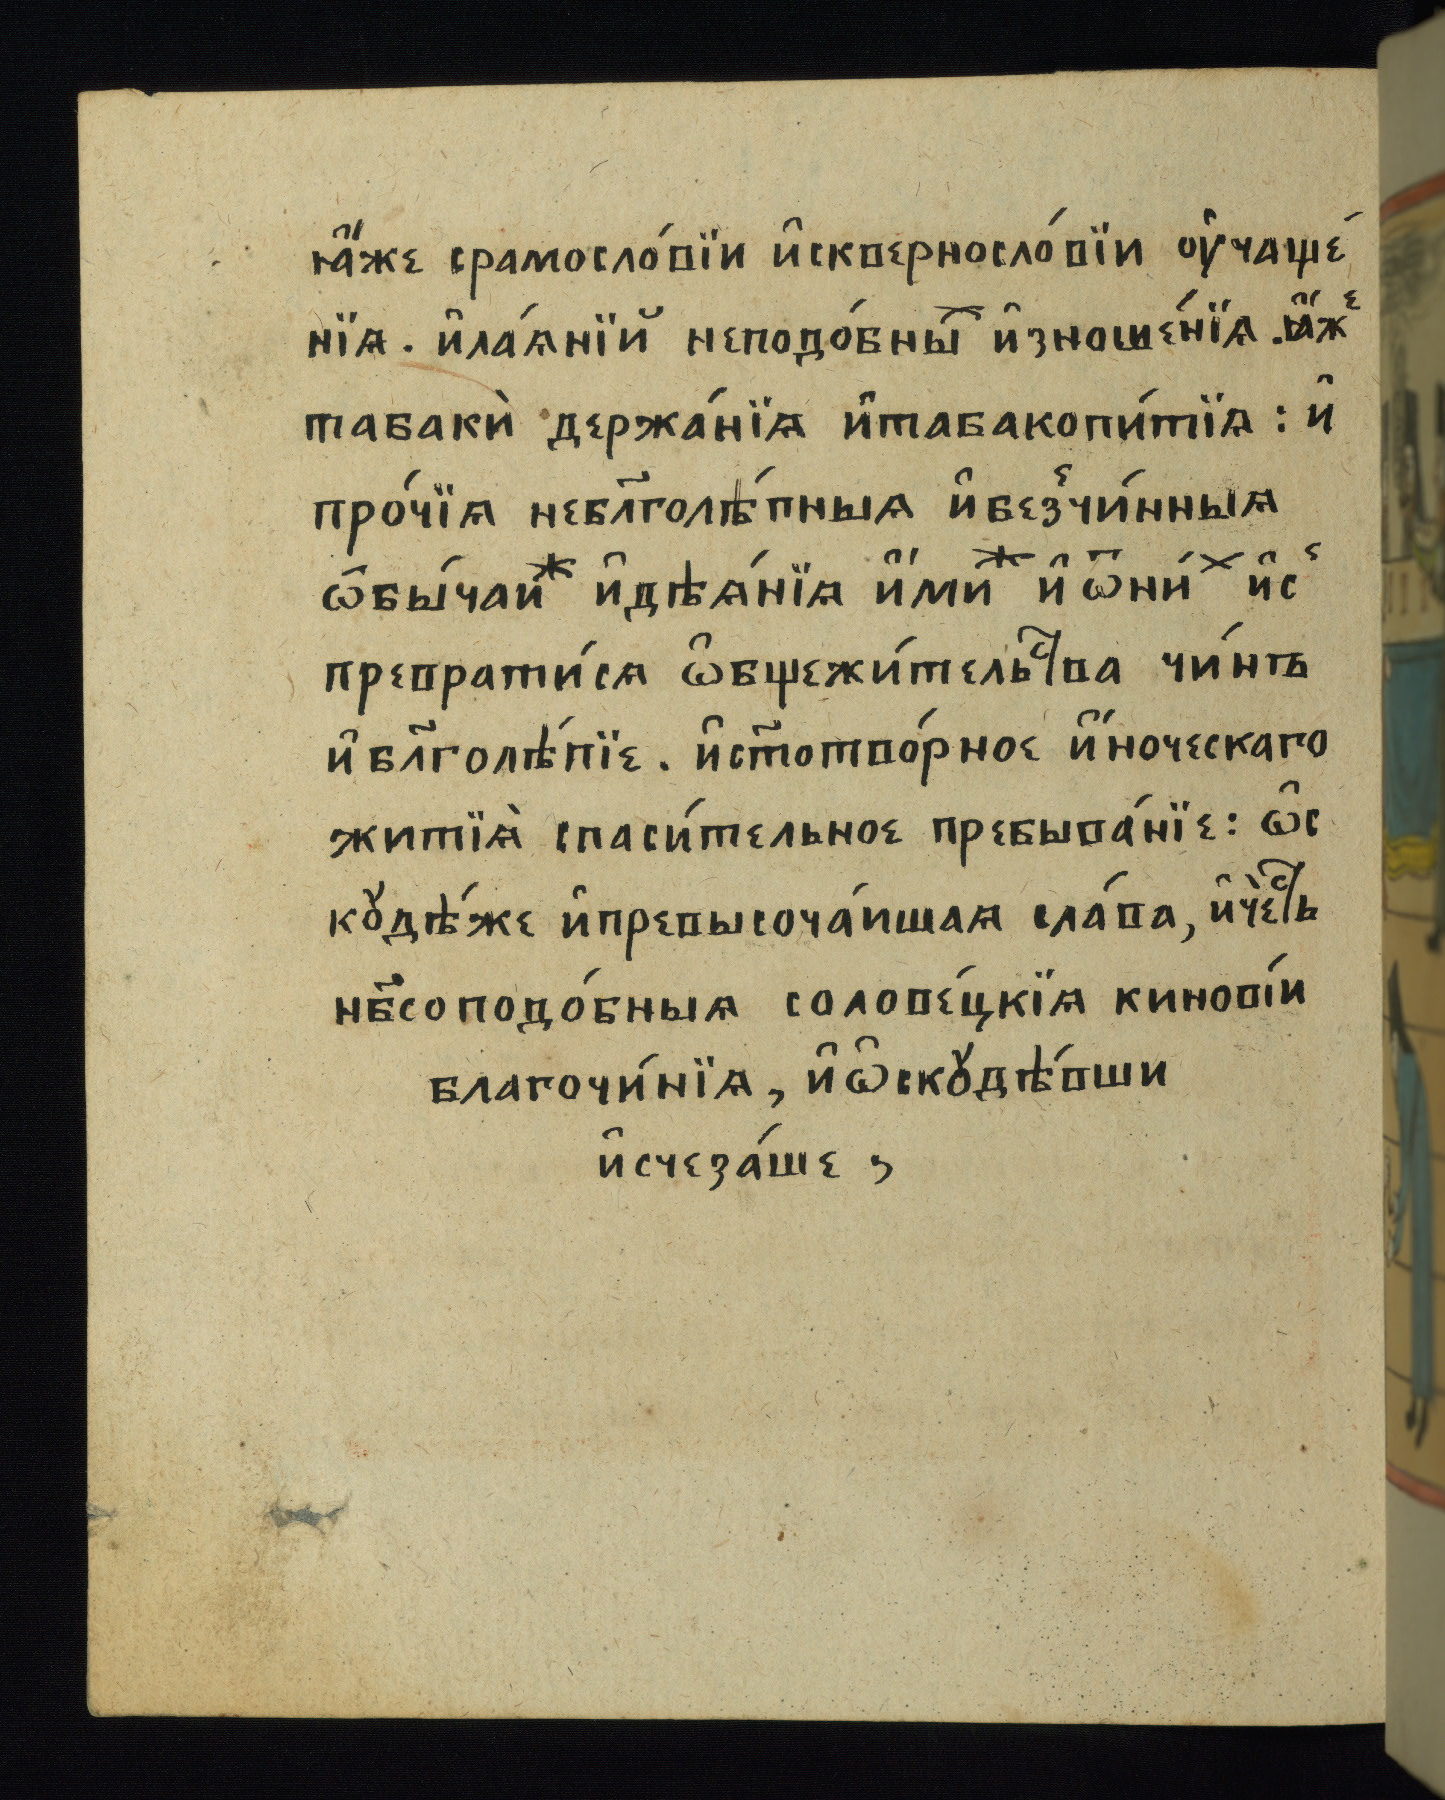 ꙗ҆́же срамосло́вїи и҆скверносло́вїи ѹ҆чаще́
нїѧ. и҆лаѧ́нїй неподо́бны̾х и҆зноше́нїѧ. ꙗ҆́жⷷ
табакѝ держа́нїѧ и҆табакопи́тїѧ : и҆
про́чїѧ небл҃голѣ́пныѧ и҆без̾чи́нныѧ
ѡ҆бы́чаиⷤ и҆дѣѧ́нїѧ и҆́миⷤ и҆ ѿни́ⷯ и҆с̾
преврати́сѧ ѡ҆бщежи́тельⷭ҇тва чи́нъ
и҆ бл҃голѣ́пїе. и҆ст҃отво́рное и҆́ноческаго
житїѧ̀ спаси́тельное пребыва́нїе : ѡ҆с
кꙋдѣ́же и҆превысоча́ишаѧ сла́ва, и҆ че́ⷭ҇ть
нб҃соподо́бныѧ солове́цкїѧ киновїи́
благочи́нїѧ, и҆ ѡ҆скꙋдѣ́вши
и҆счеза́ше ,